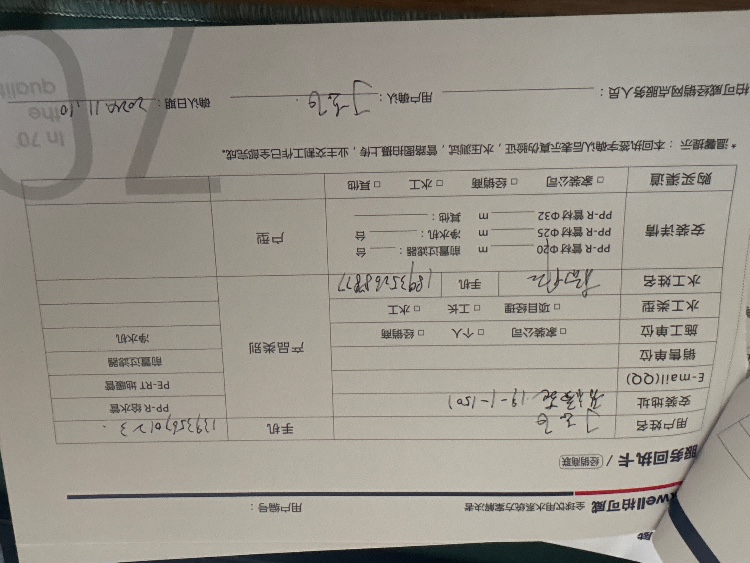 威
well柏可威 全球饮用水系统方案解决者 用户编号：
服务回执卡 / 经销商联
用户姓名 手机
安装地址 19-1-1501 PP-R 给水管
E-mail(QQ) PE-RT 地暖管
销售单位 前置过滤器
施工单位 □ 家装公司 □ 个人 □ 经销商 产品类别 净水机
水工类型 □ 项目经理 □ 工长 □ 水工
水工姓名 手机 18935268877
安装详情 PP-R 管材 Φ20 m 前置过滤器： 台 户型
PP-R 管材 Φ25 m 净水机： 台
PP-R 管材 Φ32 m 其他：
购买渠道 □ 家装公司 □ 经销商 □ 水工 □ 其他
* 温馨提示：本回执签字确认后表示真伪验证，水压测试，管路图拍摄上传，业主交割工作已全部完成。
柏可威经销网点服务人员： 用户确认： 确认日期：2020.11.10
In 70
the
qualit